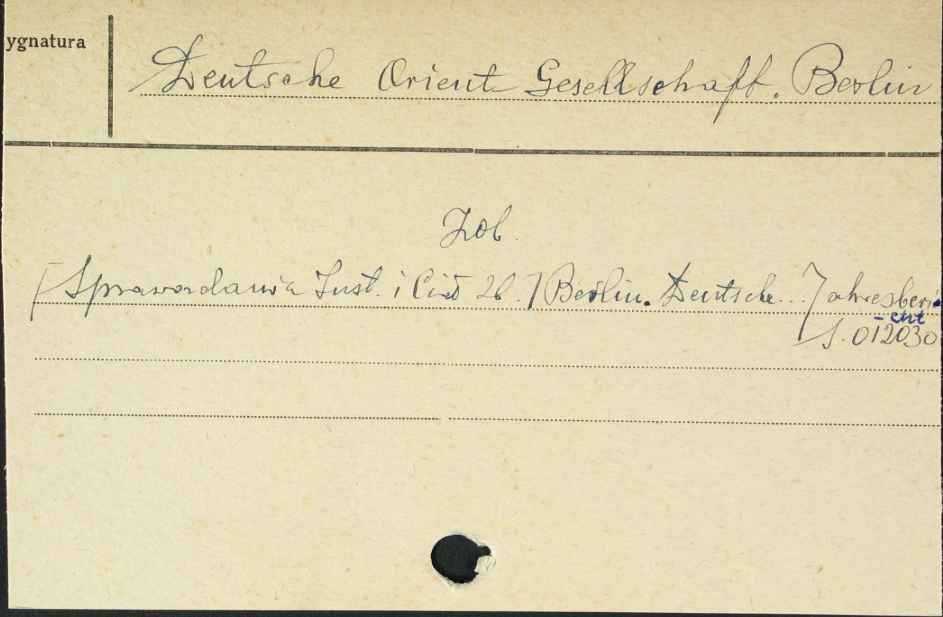 ygnatura
Deutsche Orient Gesellschaft. Berlin
Zob.
[Sprawozdania Inst. i Ciał 26.] Berlin. Deutsche... Jahresberi
-cht
S. 012030